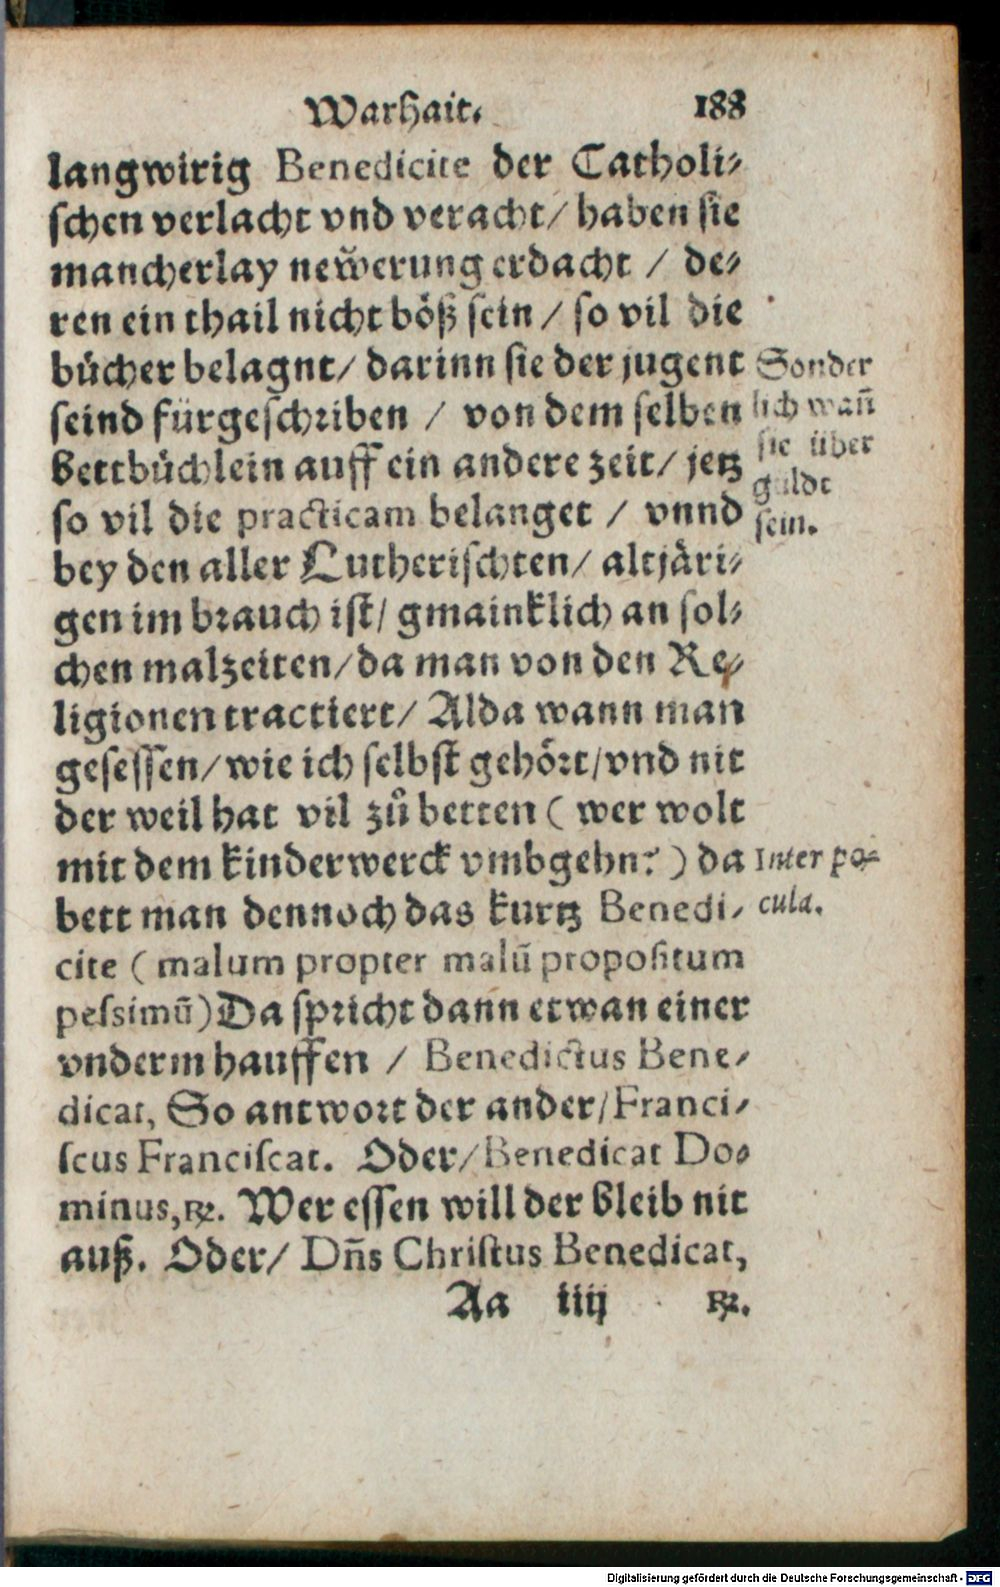 Warhait. 188
langwirig Benedicite der Catholi-
schen verlacht vnd veracht / haben sie
mancherlay new̌erung erdacht / de-
ren ein thail nicht böß sein / so vil die
bücher belagnt / darinn sie der jugent
seind fürgeschriben / von dem selben
bettbüchlein auff ein andere zeit / jetz
so vil die practicam belanget / vnnd
bey den aller Lutherischten / altjäri-
gen im brauch ist / gmainklich an sol-
chen malzeiten / da man von den Re-
ligionen tractiert / Alda wann man
gesessen / wie ich selbst gehört / vnd nit
der weil hat vil zů betten ( wer wolt
mit dem kinderwerck vmbgehn? ) da
bett man dennoch das kurtz Benedi-
cite ( malum propter malũ propositum
pessimũ ) Da spricht dann etwan einer
vnderm hauffen / Benedictus Bene-
dicat, So antwort der ander / Franci-
scus Franciscat. Oder / Benedicat Do-
minus, ℟. Wer essen will der bleib nit
auß. Oder / Dñs Christus Benedicat,
Aa iiij ℟.
Sonder
lich wañ
sie über
guldt
sein.
Inter po-
cula.
Digitalisierung gefördert durch die Deutsche Forschungsgemeinschaft - DFG